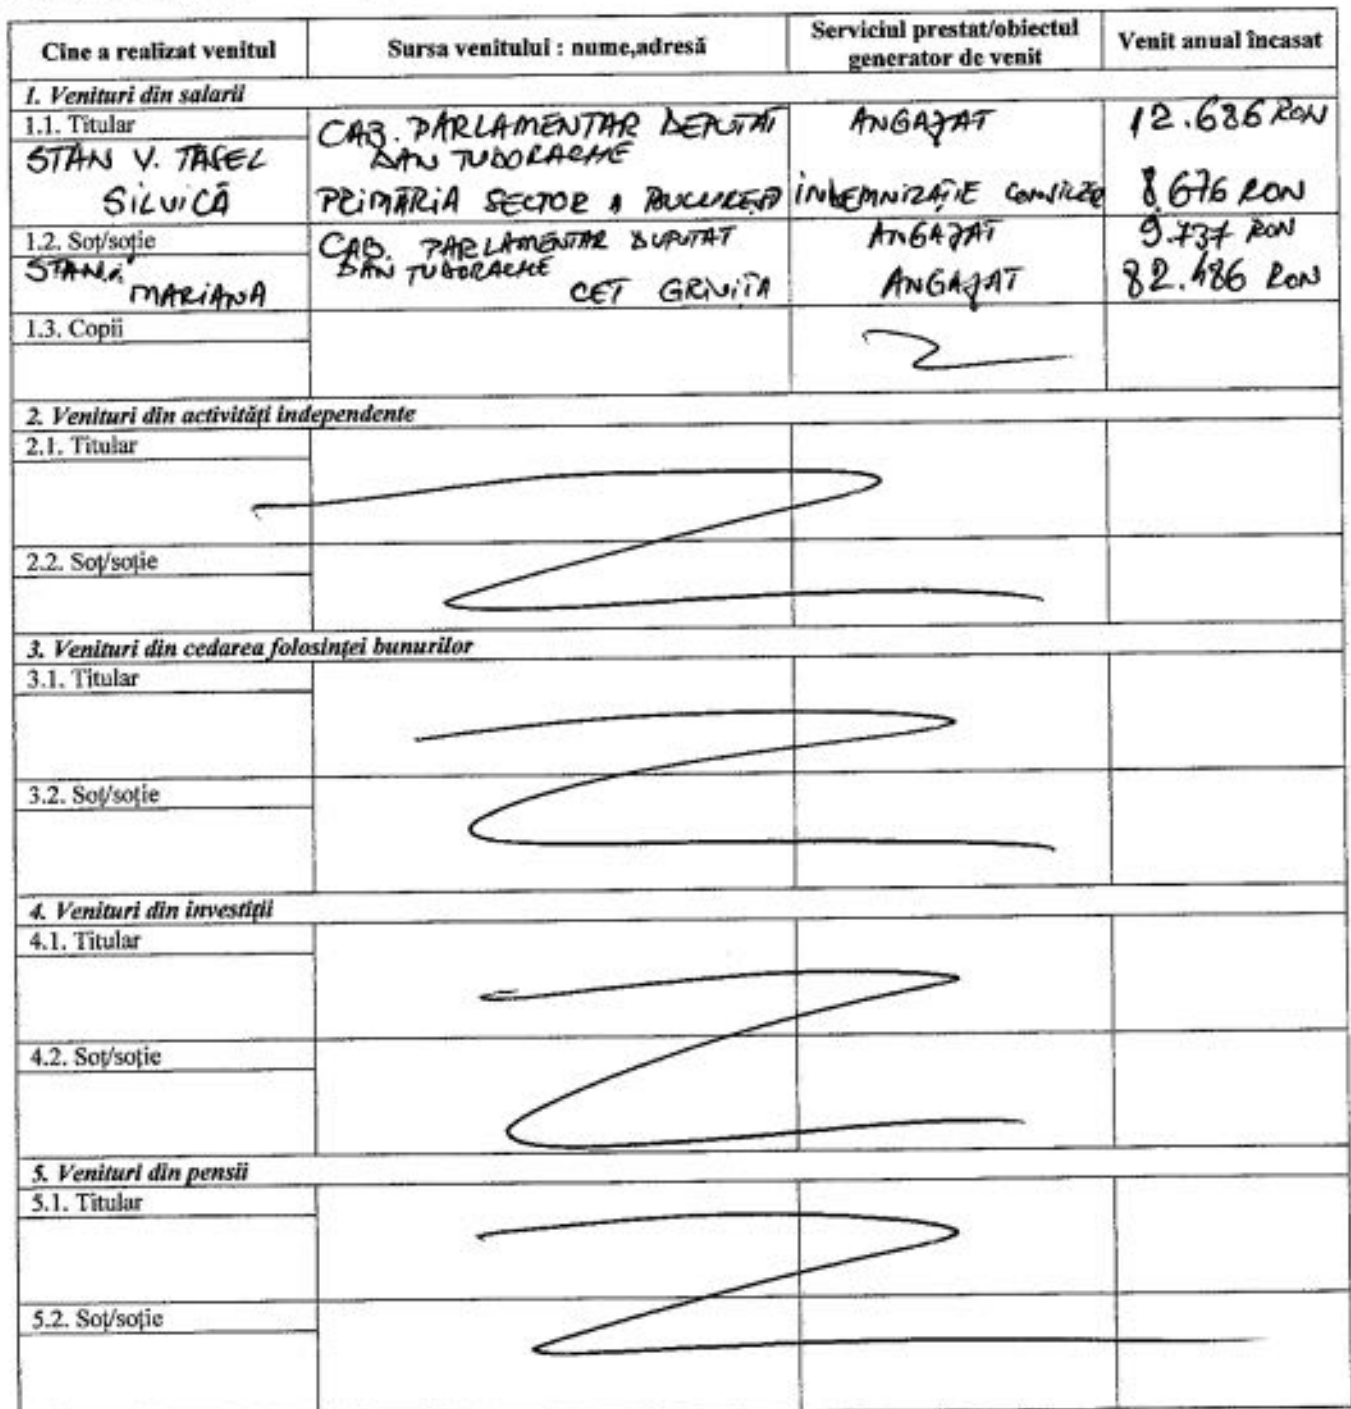 Cine a realizat venitul Sursa venitului : nume,adresă Serviciul prestat/obiectul generator de venit Venit anual încasat
1. Venituri din salarii
1.1. Titular CAB. PARLAMENTAR DEPUTAT ANGAJAT 12.686 RON
STAN V. TASEL DAN TUDORACHE
SILVICĂ PRIMĂRIA SECTOR 1 BUCUREȘTI INDEMNIZAȚIE CONSILIER 8.676 RON
1.2. Soț/soție CAB. PARLAMENTAR DUPUTAT ANGAJAT 9.737 RON
STAN DAN TUDORACHE
MARIANA CET GRIVIȚA ANGAJAT 82.486 RON
1.3. Copii
2. Venituri din activități independente
2.1. Titular
2.2. Soț/soție
3. Venituri din cedarea folosinței bunurilor
3.1. Titular
3.2. Soț/soție
4. Venituri din investiții
4.1. Titular
4.2. Soț/soție
5. Venituri din pensii
5.1. Titular
5.2. Soț/soție